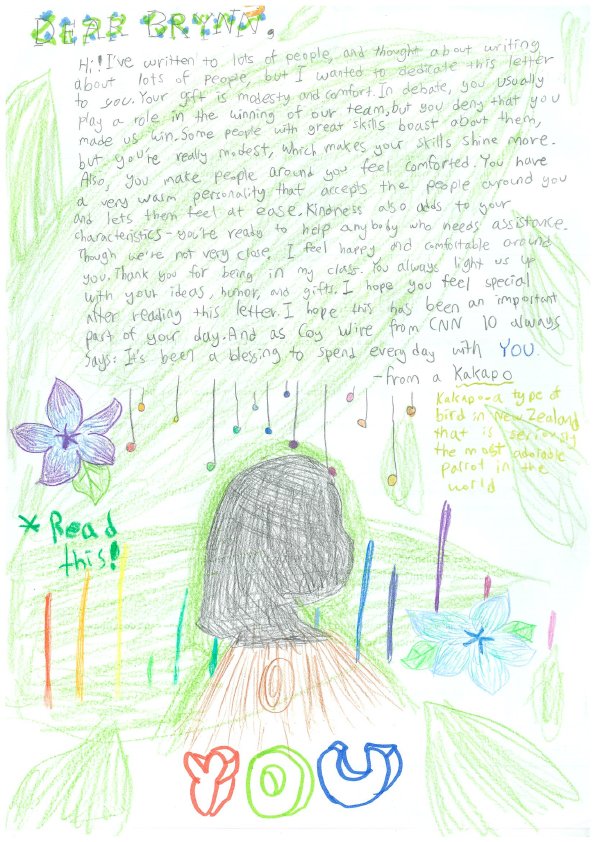 DEAR BRYNN,
Hi! I've written to lots of people, and thought about writing
about lots of people, but I wanted to dedicate this letter
to you. Your gift is modesty and comfort. In debate, you usually
play a role in the winning of our team, but you deny that you
made us win. Some people with great skills boast about them,
but you're really modest, which makes your skills shine more.
Also, you make people around you feel comforted. You have
a very warm personality that accepts the people around you
and lets them feel at ease. Kindness also adds to your
characteristics - you're ready to help anybody who needs assistance.
Though we're not very close, I feel happy and comfortable around
you. Thank you for being in my class. You always light us up
with your ideas, humor, and gifts. I hope you feel special
after reading this letter. I hope this has been an important
part of your day. And as Coy Wire from CNN 10 always
says: It's been a blessing to spend every day with YOU.
-from a Kakapo
Kakapo-a type of
bird in New Zealand
that is seriously
the most adorable
parrot in the
world
* Read
this!
YOU